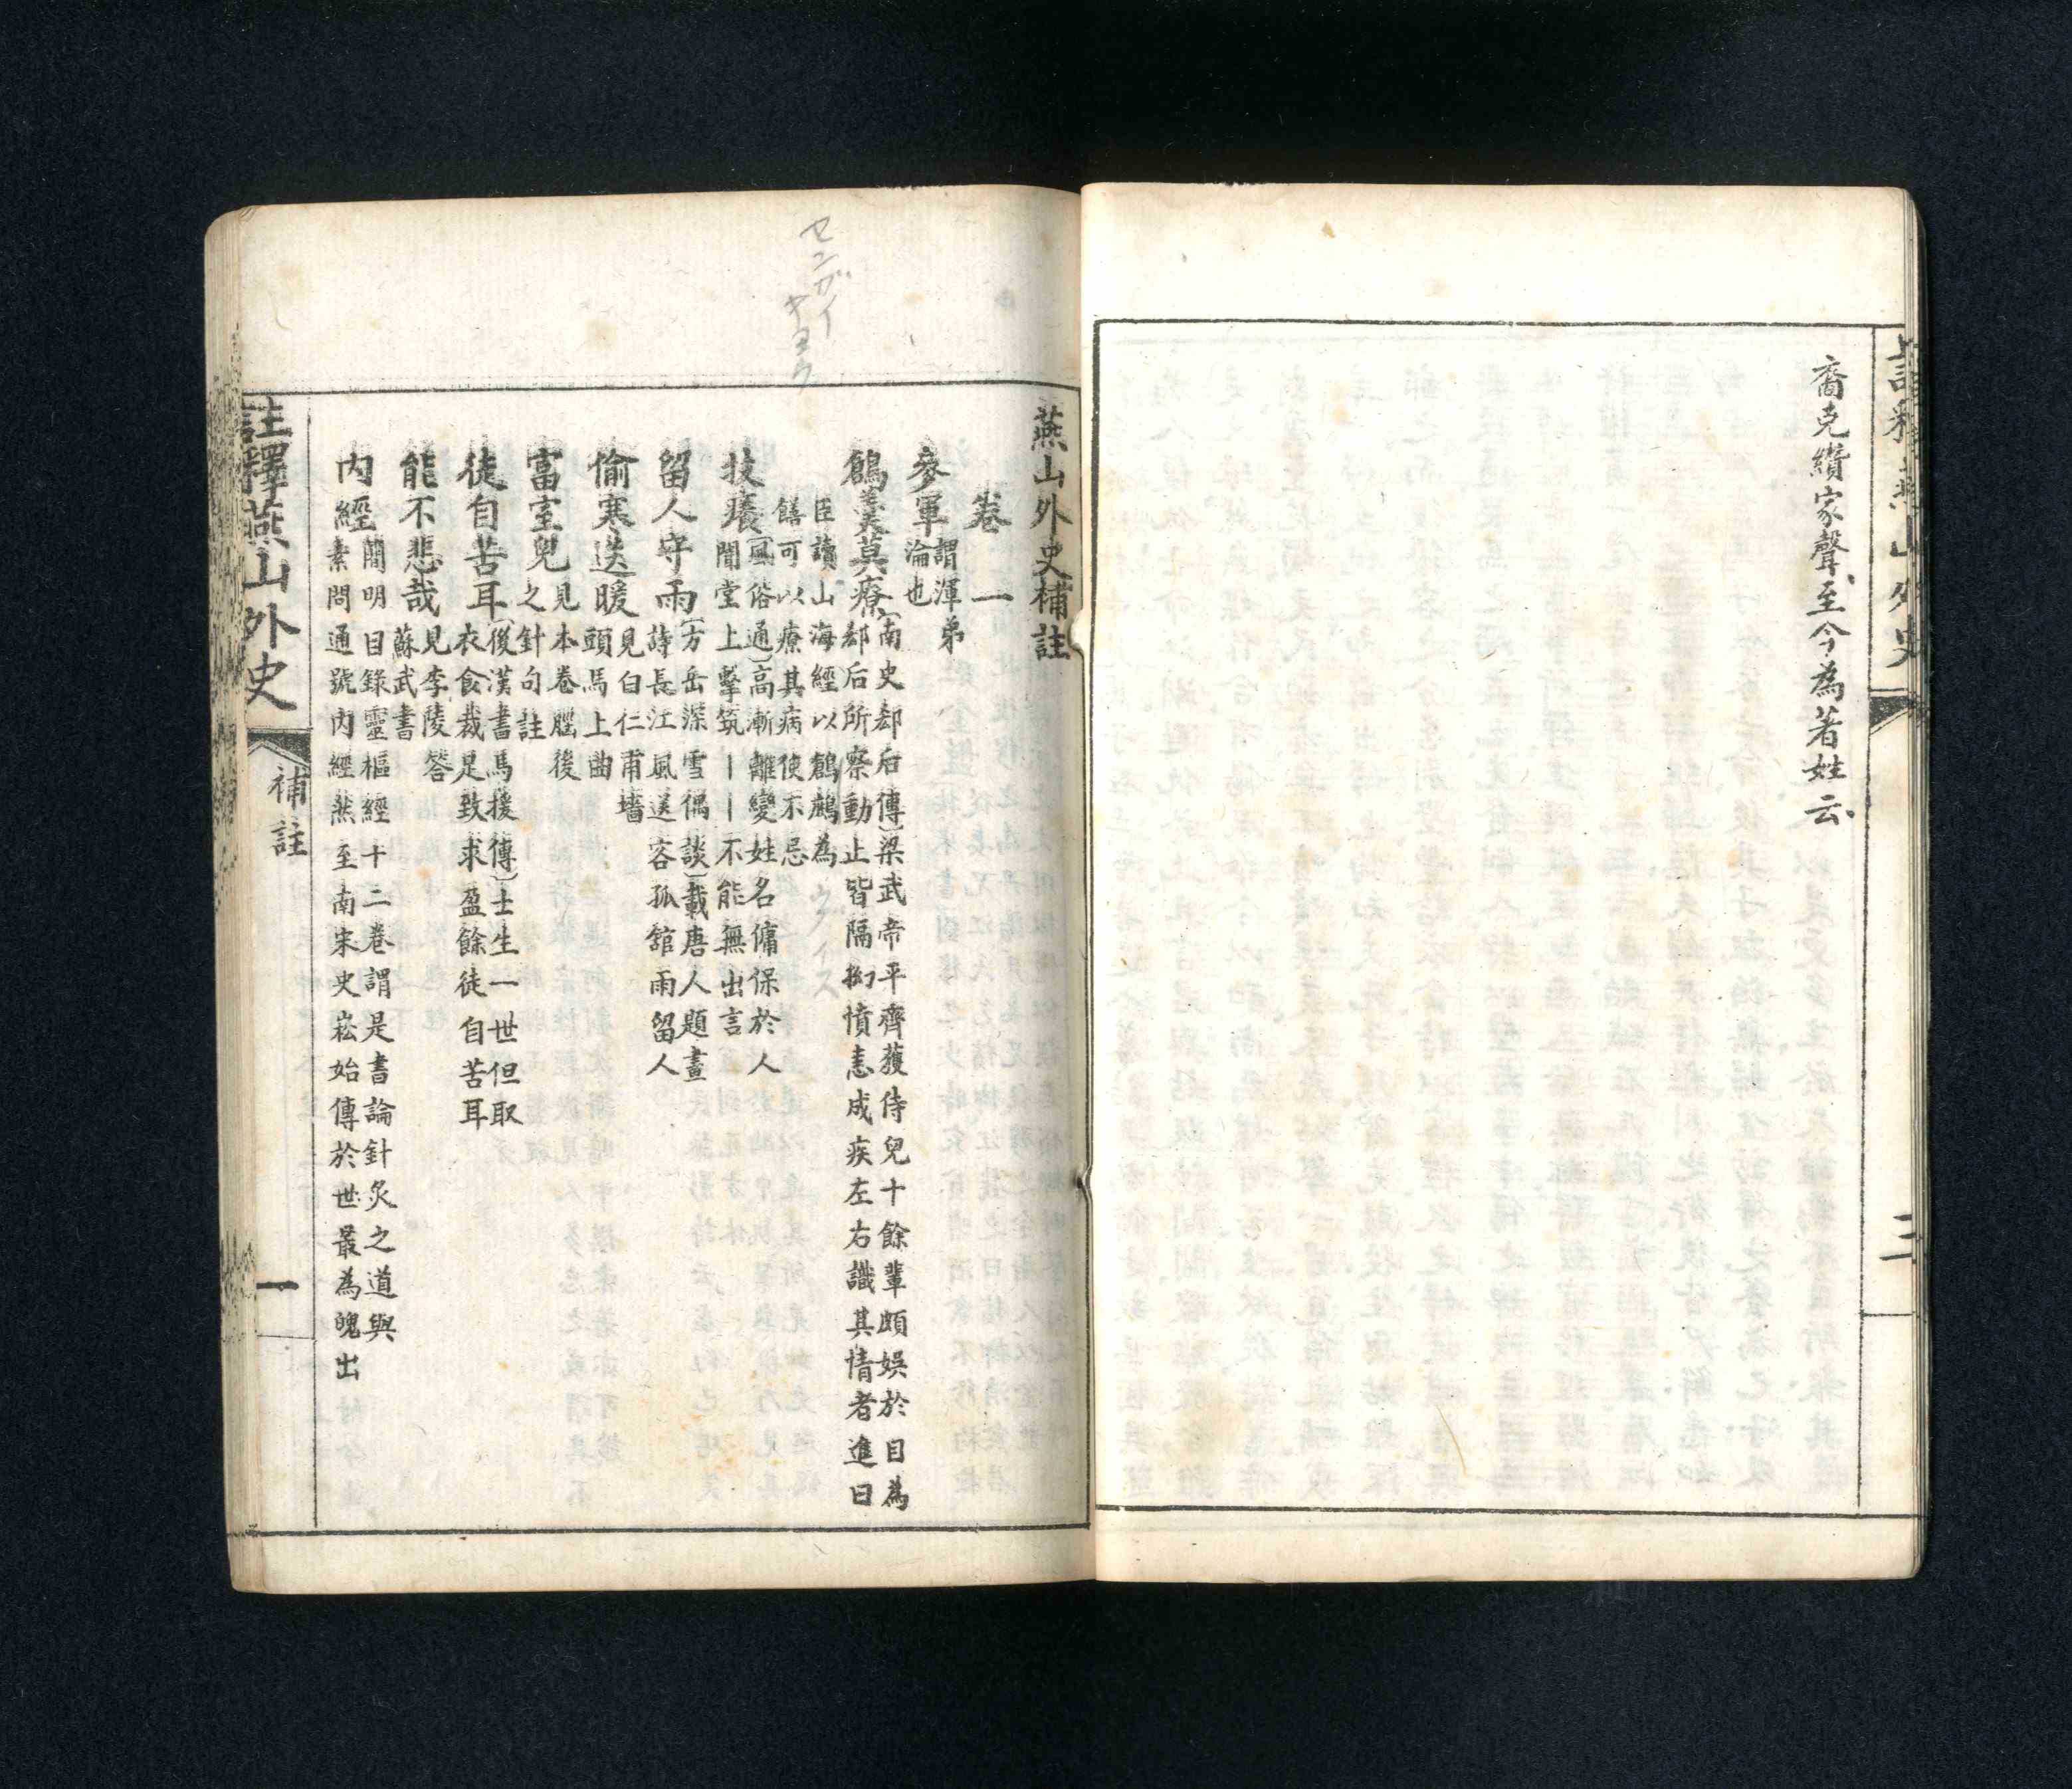 裔克纘家聲至今為著姓云
三
燕山外史補註
卷一
參軍謂渾弟
淪也
鶬羹莫療〔南史郄后傳〕梁武帝平齊獲侍兒十餘輩頗娛於目為
郄后所察動止皆隔抑憤恚成疾左右識其情者進曰
臣讀山海經以鶬鶊為
饍可以療其病使不忌
技癢〔風俗通〕高漸離變姓名傭保於人
聞堂上擊筑丨丨不能無出言
留人守雨〔方岳深雪偶談〕載唐人題畫
詩長江風送客孤舘雨留人
偷寒送暖見白仁甫墻
頭馬上曲
富室兒見本卷腥後
之針句註
徒自苦耳〔後漢書馬援傳〕士生一世但取
衣食裁足致求盈餘徒自苦耳
能不悲哉見李陵答
蘇武書
內經簡明目錄靈樞經十二卷謂是書論針炙之道與
素問通號內經然至南宋史崧始傳於世最為晚出
註釋燕山外史
補註
一
センガイ
ウグイス